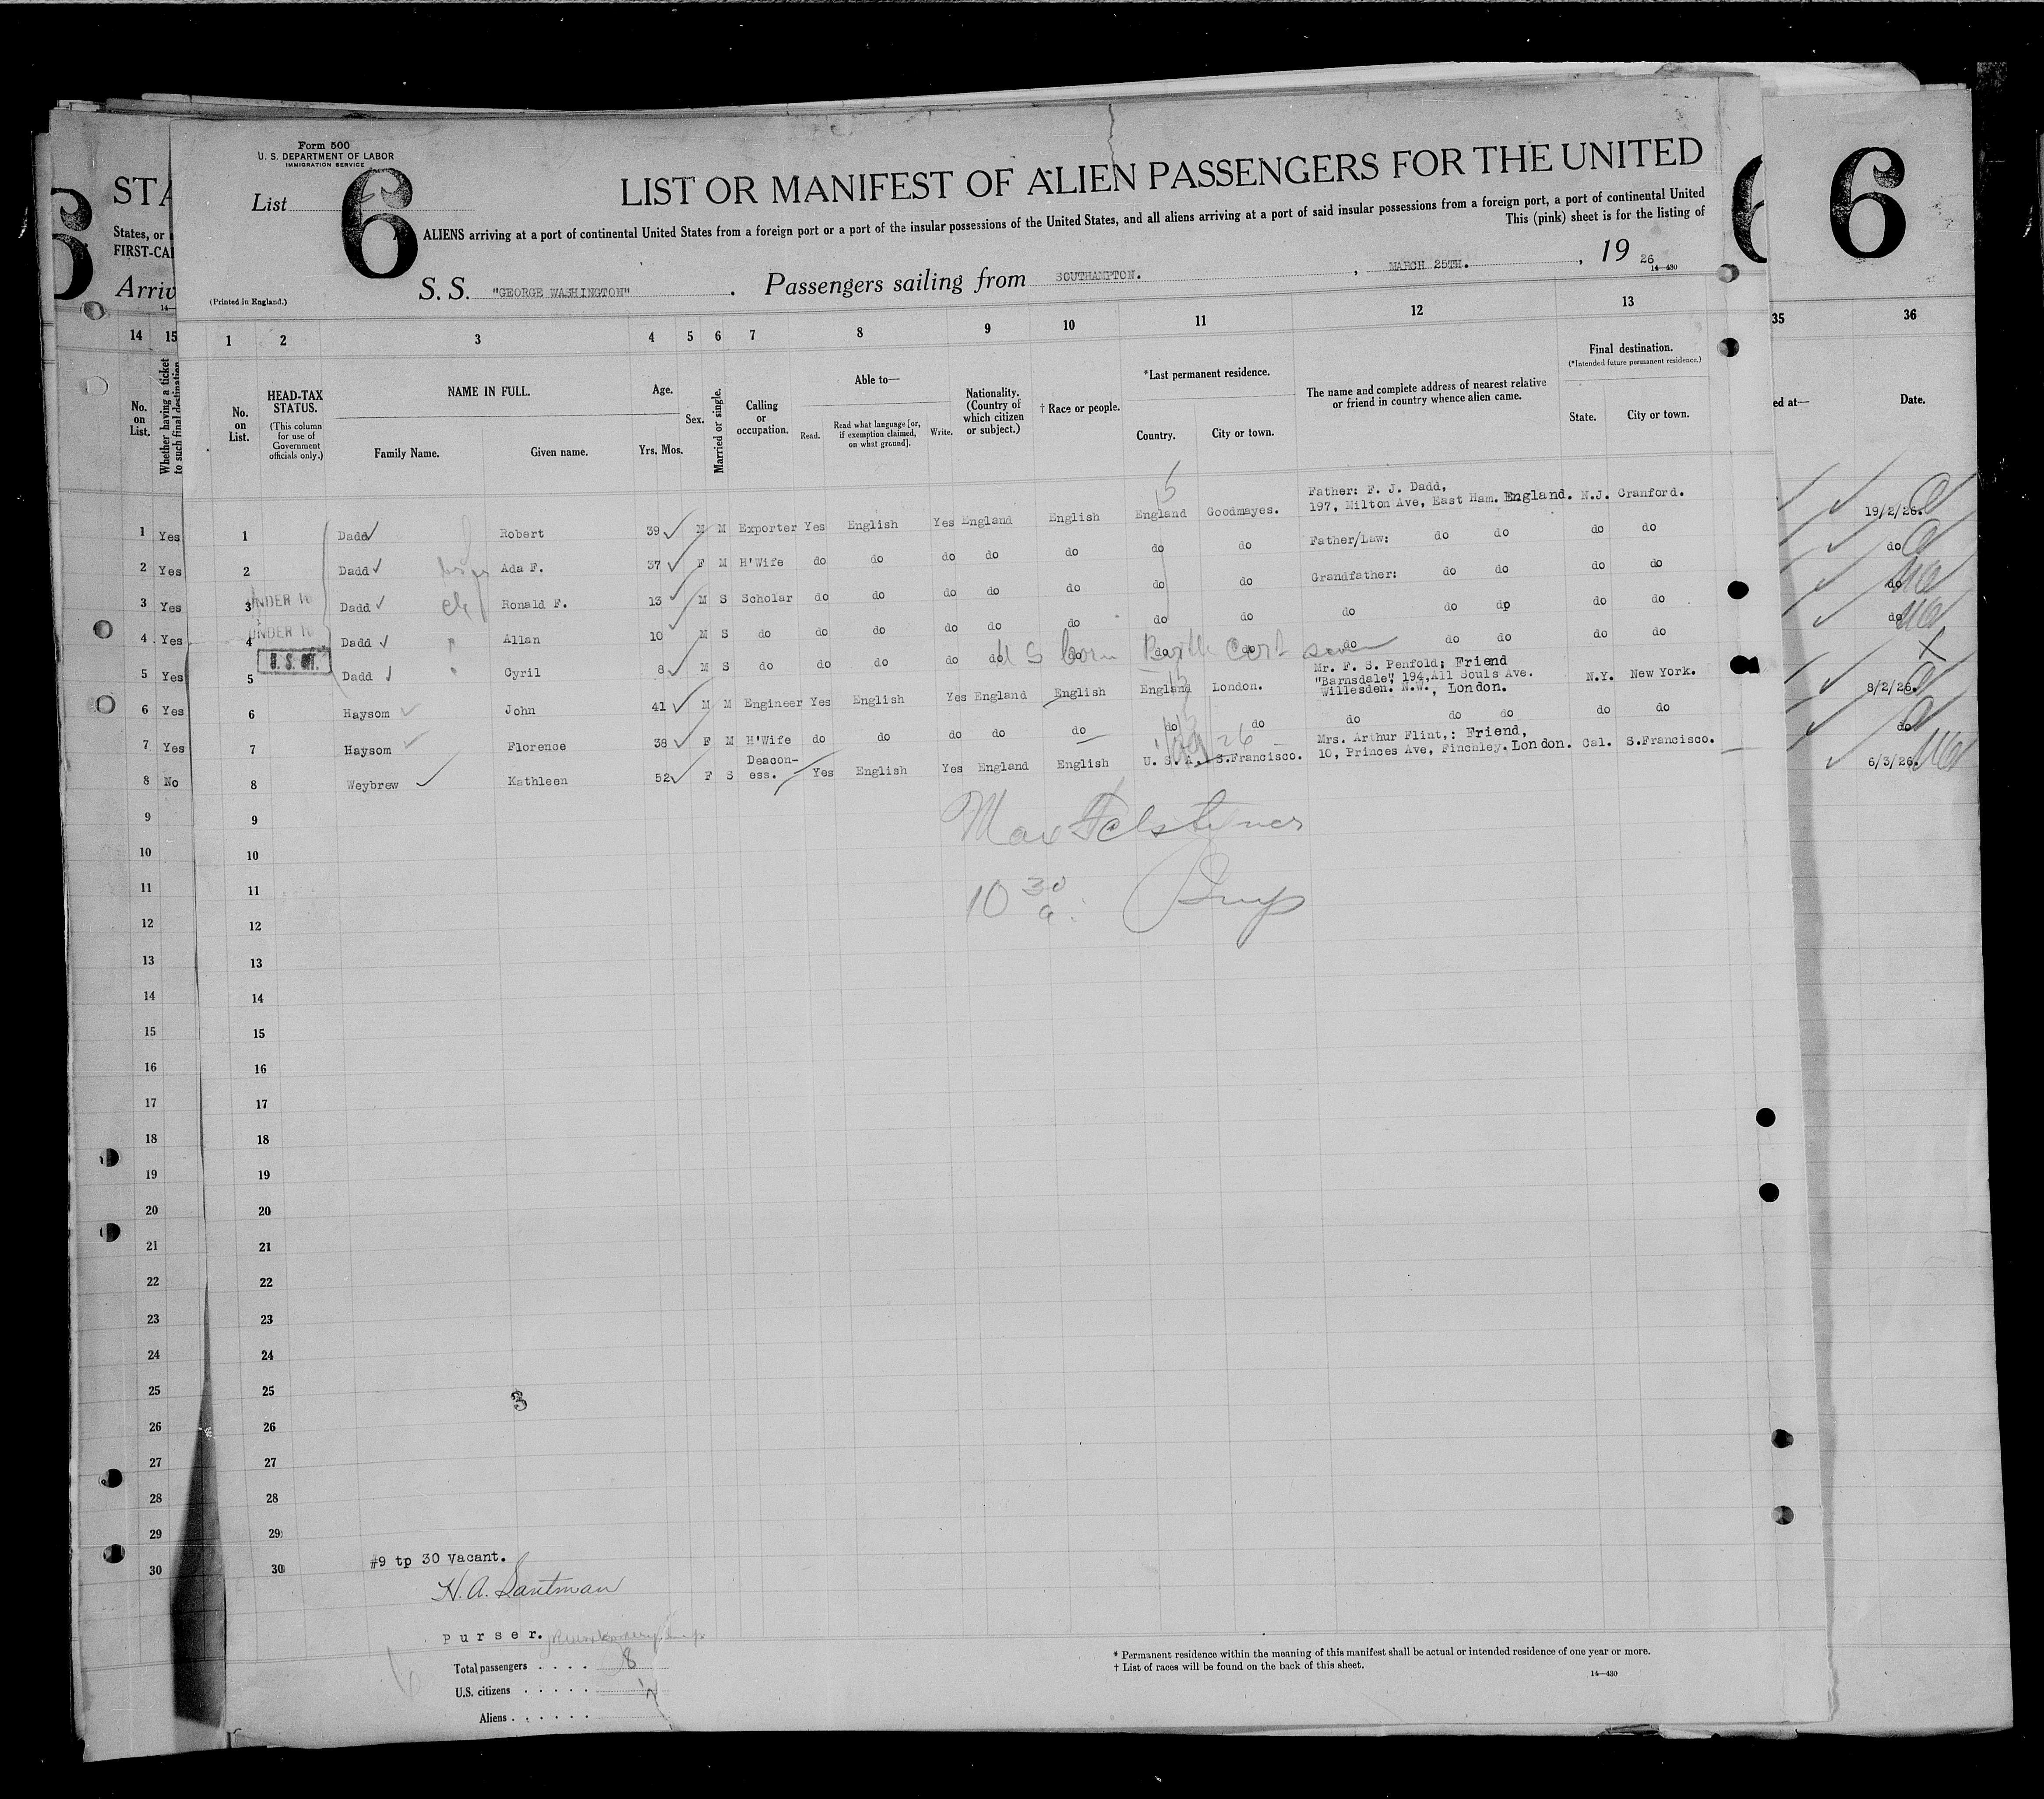 Form 500
U. S. DEPARTMENT OF LABOR
IMMIGRATION SERVICE
List 6
LIST OR MANIFEST OF ALIEN PASSENGERS FOR THE UNITED
ALIENS arriving at a port of continental United States from a foreign port or a port of the insular possessions of the United States, and all aliens arriving at a port of said insular possessions from a foreign port, a port of continental United
This (pink) sheet is for the listing of
(Printed in England.)
S. S. "GEORGE WASHINGTON" . Passengers sailing from SOUTHAMPTON. , MARCH 25TH. , 19 26
14—430
STA
States, or
FIRST-CA
Arriv
6
14 15 1 2 3 4 5 6 7 8 9 10 11 12 13 35 36
No. on List.
Whether having a ticket to such final destination
No. on List.
HEAD-TAX STATUS.
(This column for use of Government officials only.)
NAME IN FULL.
Family Name. Given name.
Age.
Yrs. Mos.
Sex.
Married or single.
Calling or occupation.
Able to—
Read. Read what language [or, if exemption claimed, on what ground]. Write.
Nationality. (Country of which citizen or subject.)
† Race or people.
*Last permanent residence.
Country. City or town.
The name and complete address of nearest relative or friend in country whence alien came.
Final destination.
(*Intended future permanent residence.)
State. City or town.
ed at— Date.
Father: F. J. Dadd,
1 Yes 1 Dadd Robert 39 M M Exporter Yes English Yes England English England Goodmayes. 197, Milton Ave, East Ham. England. N.J. Cranford. 19/2/26.
2 Yes 2 Dadd Ada F. 37 F M H'Wife do do do do do do do Father/Law: do do do do do
3 Yes 3 UNDER 16 Dadd Ronald F. 13 M S Scholar do do do do do do do Grandfather: do do do do do
4 Yes 4 UNDER 16 Dadd Allan 10 M S do do do do do do do do do do do do do do
U. S. CIT.
5 Yes 5 Dadd Cyril 8 M S do do do do do do do do do do do do do
U S born Birth Cert seen
Mr. F. S. Penfold; Friend
"Barnsdale", 194, All Souls Ave.
6 Yes 6 Haysom John 41 M M Engineer Yes English Yes England English England London. Willesden. N.W., London. N.Y. New York. 8/2/26.
7 Yes 7 Haysom Florence 38 F M H'Wife do do do do do do do do do do do do do
Mrs. Arthur Flint,: Friend,
8 No 8 Weybrew Kathleen 52 F S Deacon-ess. Yes English Yes England English U. S. A. S.Francisco. 10, Princes Ave, Finchley. London. Cal. S.Francisco. 6/3/26.
9 9
10 10
10 30 a. Insp
11 11
12 12
13 13
14 14
15 15
16 16
17 17
18 18
19 19
20 20
21 21
22 22
23 23
24 24
25 25
3
26 26
27 27
28 28
29 29
30 30
#9 tp 30 Vacant.
H. A. Santman
Purser.
Total passengers . . . . 8
U.S. citizens . . . . .
Aliens . . . . . .
* Permanent residence within the meaning of this manifest shall be actual or intended residence of one year or more.
† List of races will be found on the back of this sheet.
14—430